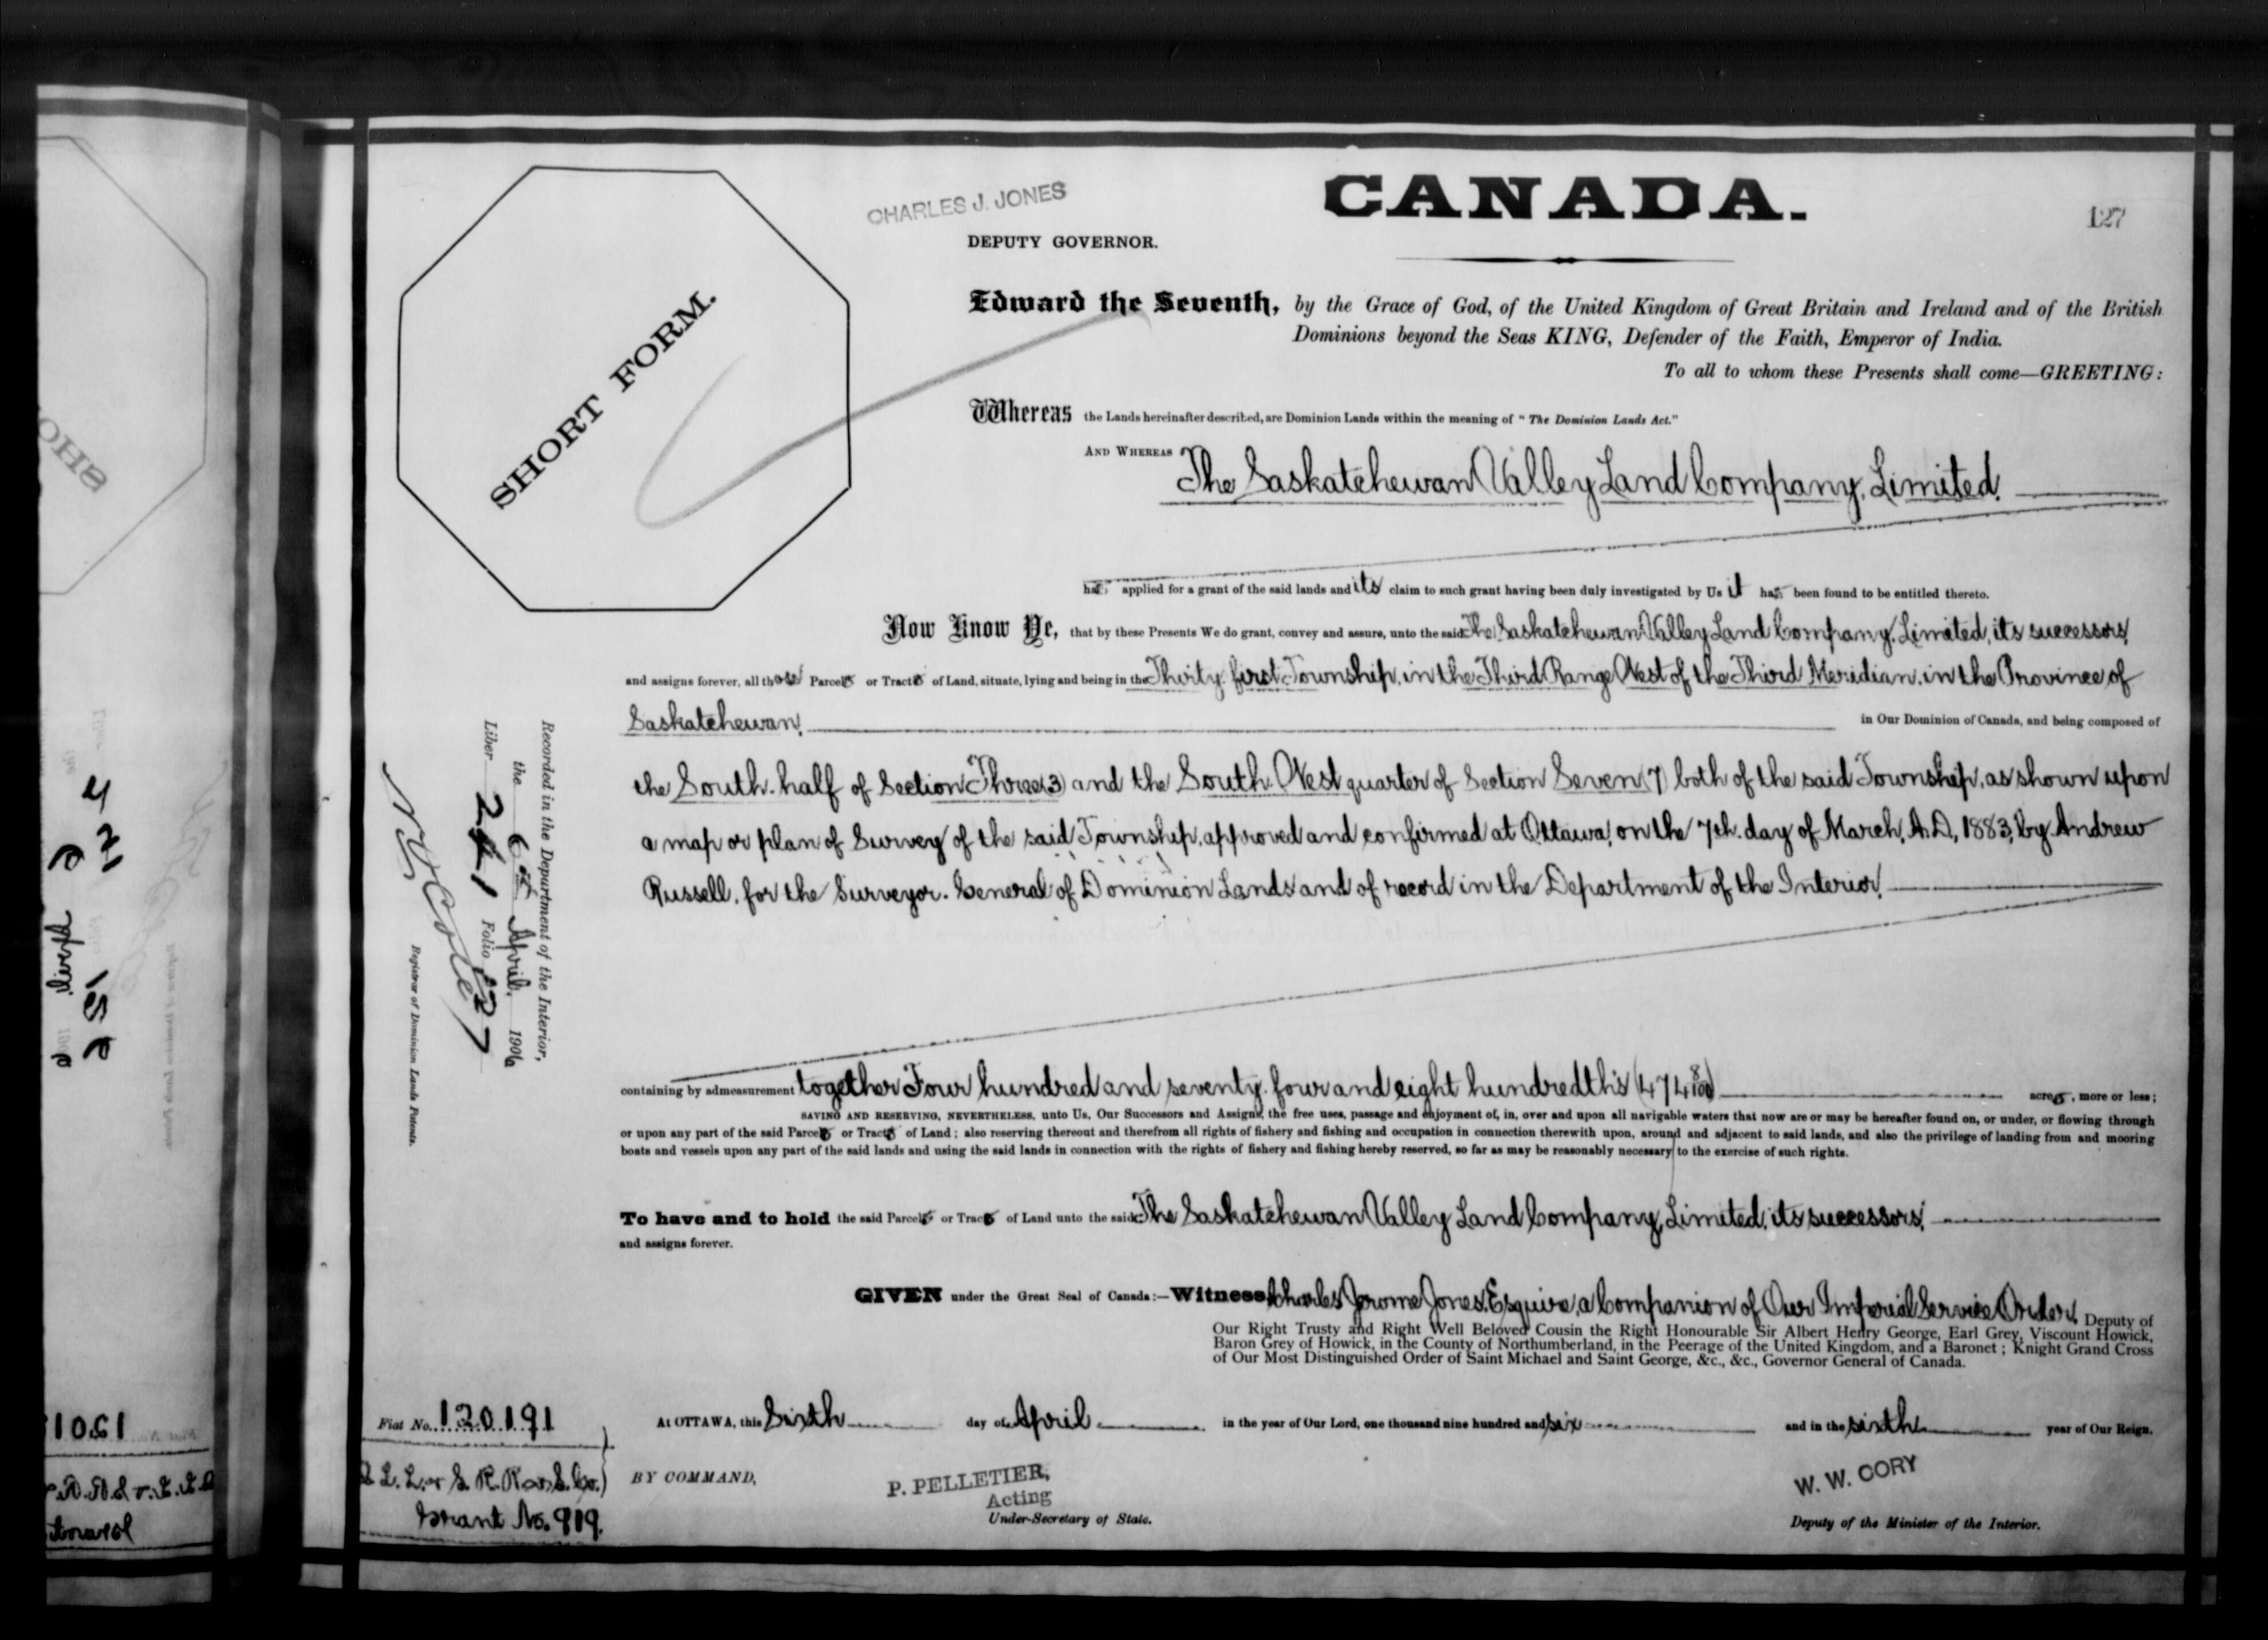 CANADA.
127
CHARLES J. JONES
DEPUTY GOVERNOR.
SHORT FORM.
Edward the Seventh, by the Grace of God, of the United Kingdom of Great Britain and Ireland and of the British
Dominions beyond the Seas KING, Defender of the Faith, Emperor of India.
To all to whom these Presents shall come—GREETING:
Whereas the Lands hereinafter described, are Dominion Lands within the meaning of "The Dominion Lands Act."
AND WHEREAS The Saskatchewan Valley Land Company, Limited.
has applied for a grant of the said lands and its claim to such grant having been duly investigated by Us it has been found to be entitled thereto.
Now Know Ye, that by these Presents We do grant, convey and assure, unto the said The Saskatchewan Valley Land Company, Limited, its successors
and assigns forever, all those Parcels or Tracts of Land, situate, lying and being in the Thirty-first Township, in the Third Range West of the Third Meridian, in the Province of
Saskatchewan, in Our Dominion of Canada, and being composed of
the South-half of Section Three (3) and the South-West quarter of Section Seven, 7, both of the said Township, as shown upon
a map or plan of Survey of the said Township, approved and confirmed at Ottawa, on the 7th. day of March, A.D., 1883, by Andrew
Russell, for the Surveyor-General of Dominion Lands and of record in the Department of the Interior.
containing by admeasurement together Four hundred and seventy-four and eight hundredths (474 8/100) acres, more or less;
SAVING AND RESERVING, NEVERTHELESS, unto Us, Our Successors and Assigns, the free uses, passage and enjoyment of, in, over and upon all navigable waters that now are or may be hereafter found on, or under, or flowing through
or upon any part of the said Parcels or Tracts of Land; also reserving thereout and therefrom all rights of fishery and fishing and occupation in connection therewith upon, around and adjacent to said lands, and also the privilege of landing from and mooring
boats and vessels upon any part of the said lands and using the said lands in connection with the rights of fishery and fishing hereby reserved, so far as may be reasonably necessary to the exercise of such rights.
To have and to hold the said Parcels or Tracts of Land unto the said The Saskatchewan Valley Land Company, Limited, its successors
and assigns forever.
GIVEN under the Great Seal of Canada:—Witness Charles Jerome Jones, Esquire, a Companion of Our Imperial Service Order, Deputy of
Our Right Trusty and Right Well Beloved Cousin the Right Honourable Sir Albert Henry George, Earl Grey, Viscount Howick,
Baron Grey of Howick, in the County of Northumberland, in the Peerage of the United Kingdom, and a Baronet; Knight Grand Cross
of Our Most Distinguished Order of Saint Michael and Saint George, &c., &c., Governor General of Canada.
At OTTAWA, this Sixth day of April in the year of Our Lord, one thousand nine hundred and six and in the sixth year of Our Reign.
BY COMMAND,
P. PELLETIER,
Acting
Under-Secretary of State.
W. W. CORY
Deputy of the Minister of the Interior.
Recorded in the Department of the Interior,
the 6th April, 1906
Liber 241 Folio 127
Registrar of Dominion Lands Patents.
Fiat No. 120191
Grant No. 919.